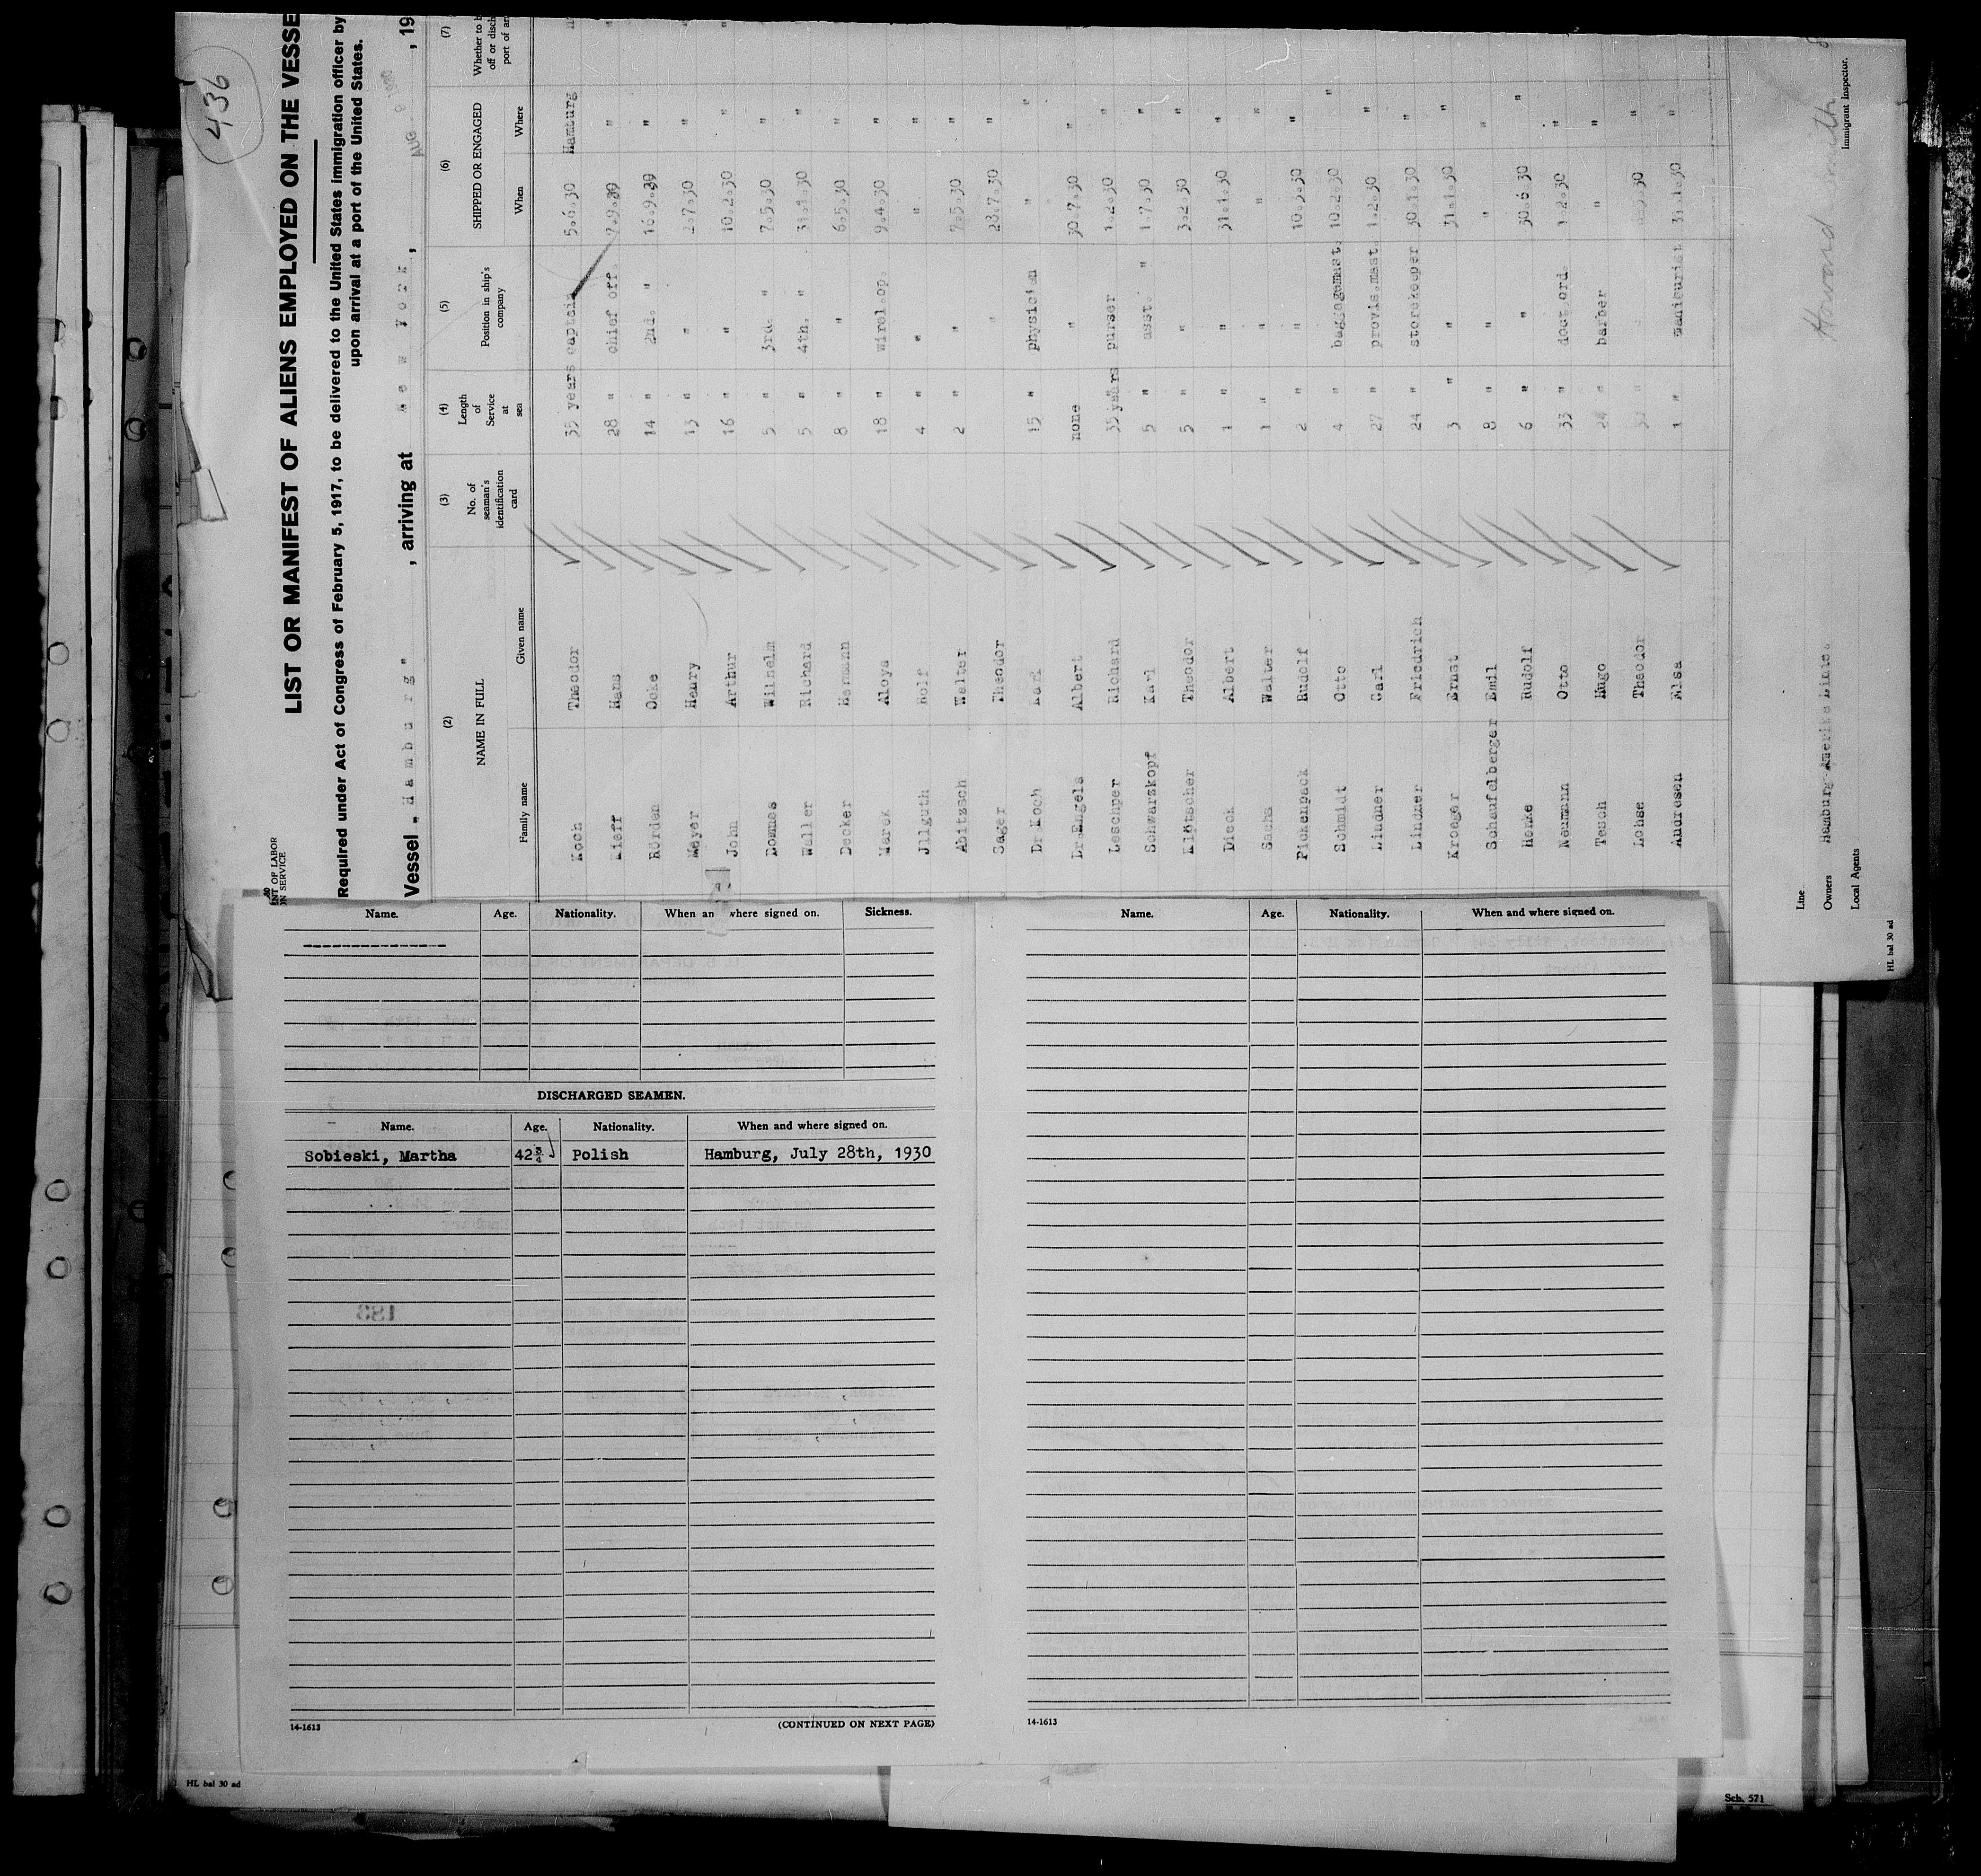 436
LIST OR MANIFEST OF ALIENS EMPLOYED ON THE VESSE
Required under Act of Congress of February 5, 1917, to be delivered to the United States immigration officer by
upon arrival at a port of the United States.
NT OF LABOR
N SERVICE
Vessel "Hamburg" , arriving at New York, , 19
AUG 1930
(2) (3) (4) (5) (6) (7)
NAME IN FULL No. of seaman's identification card Length of Service at sea Position in ship's company SHIPPED OR ENGAGED Whether to b off or disch port of ar
Family name Given name When Where
Koch Theodor 35 years captain 5.6.30 Hamburg
Kieff Hans 28 " chief off. "
Rörden Ocke 14 " 2nd. " "
Meyer Henry 13 " " 2.7.30 "
John Arthur 16 " " 10.2.30 " "
Downes Wilhelm 5 " 3rd. " 7.5.30 "
Weller Richard 5 " 4th. " "
Decker Hermann 8 " " 6.5.30 "
Marek Aloys 18 " wirel.op. 9.4.30 "
Jllguth Rolf 4 " " " "
Abitzsch Walter 2 " " "
Sager Theodor " 23.7.30 "
Dr.Koch Karl 15 " physician " "
Dr.Engels Albert none " 30.7.30 "
Leschper Richard 35 years purser 1.2.30 "
Schwarzkopf Karl 5 " asst. " 1.7.30 "
Klötscher Theodor 5 " " 3.2.30 "
Dieck Albert 1 " " 31.1.30 "
Sachs Walter 1 " " "
Pickenpack Rudolf 2 " " 10.3.30 "
Schmidt Otto 4 " baggagemast. 10.2.30 "
Lindner Carl 27 " provis.mast. 1.2.30 "
Lindner Friedrich 24 " storekeeper 30.1.30 "
Kroeger Ernst 3 " " 31.1.30 "
Schaufelberger Emil 8 " " " "
Henke Rudolf 6 " " 30.6.30 "
Neumann Otto 33 " doct.ord. 1.2.30 "
Tesch Hugo 24 " barber " "
Lohse Theodor " "
Andresen Elsa 1 " manicurist 31.1.30 "
Line
Owners Hamburg-Amerika Linie.
Local Agents
Howard Smith
Immigrant Inspector.
HL bal 30 ad
Name. Age. Nationality. When an where signed on. Sickness.
----------------
DISCHARGED SEAMEN.
Name. Age. Nationality. When and where signed on.
Sobieski, Martha 42 Polish Hamburg, July 28th, 1930
14-1613 (CONTINUED ON NEXT PAGE)
Name. Age. Nationality. When and where signed on.
14-1613
HL bal 30 ad
Sch. 571